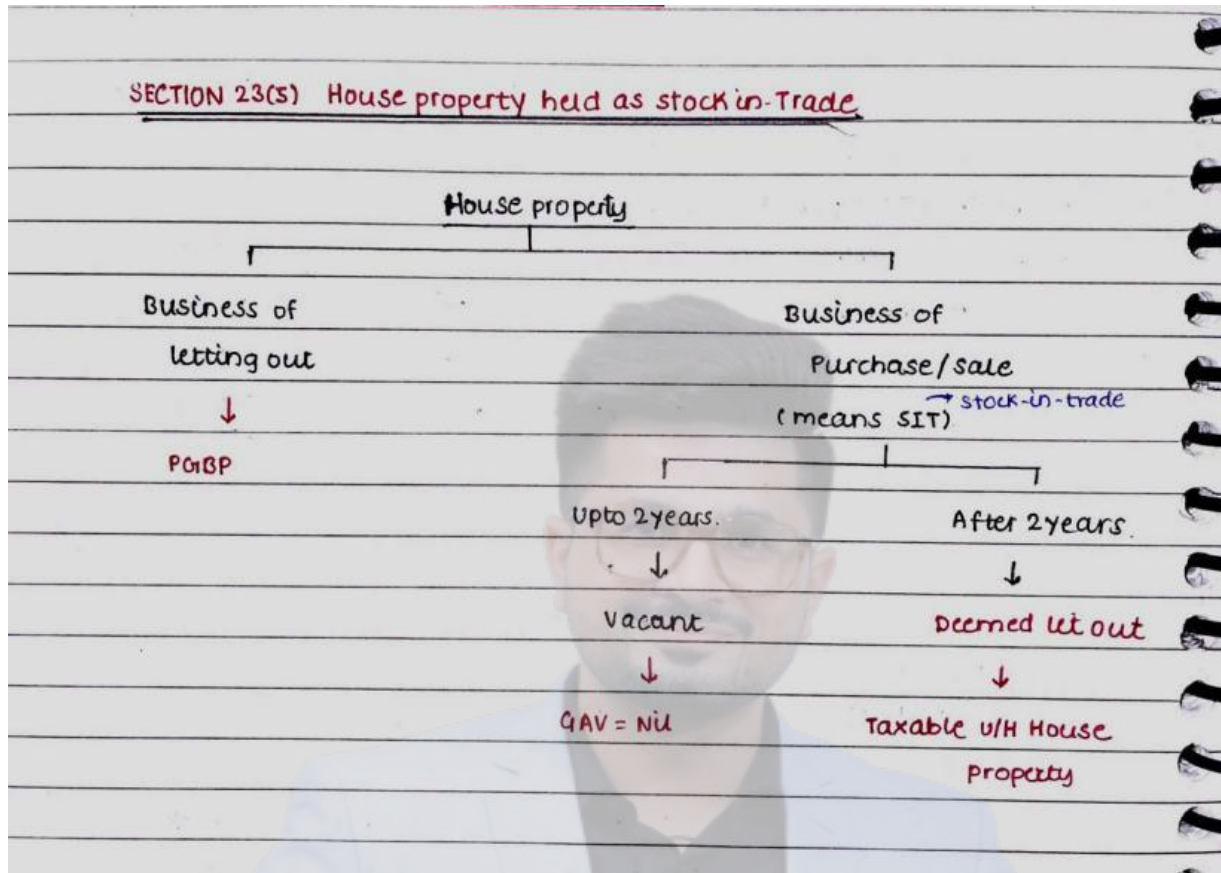 SECTION 23(5) House property held as stock in-Trade
House property
Business of
letting out
PGBP
Business of
Purchase/sale
(means SIT) → stock-in-trade
Upto 2 years.
Vacant
GAV = Nil
After 2 years.
Deemed let out
Taxable u/H House
property